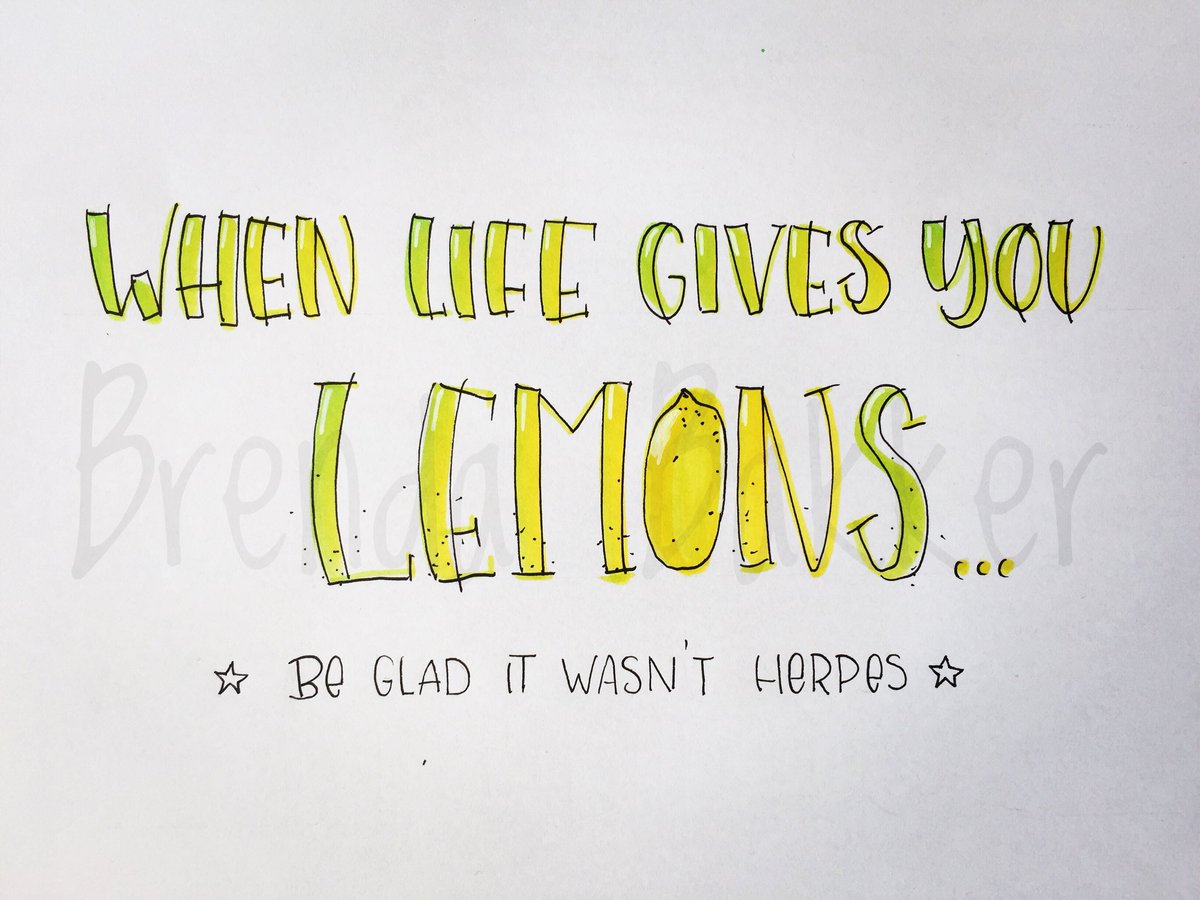 WHEN LIFE GIVES YOU
Brenda Bakker
LEMONS...
☆ Be GLAD IT WASN'T HeRPeS ☆